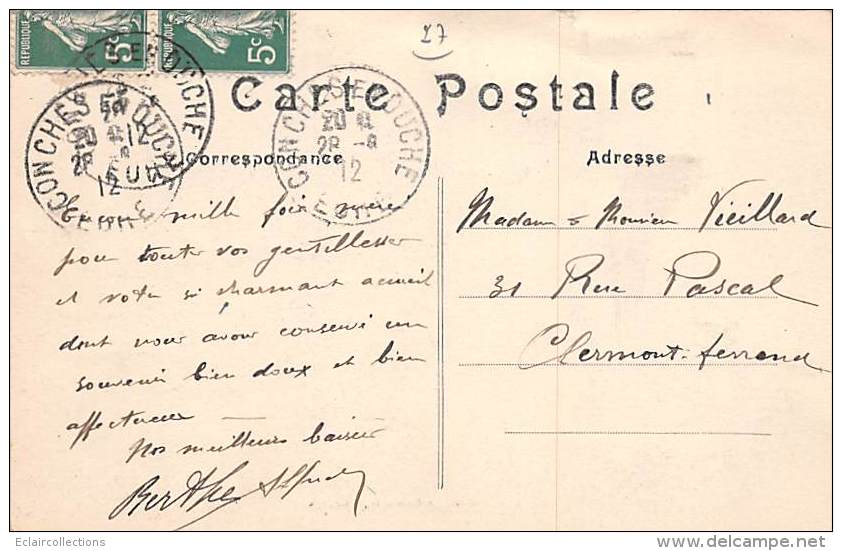 27
REPUBLIQUE 5c REPUBLIQUE 5c
Carte Postale
CONCHES EN OUCHE
20
28 -8
12
EURE
Correspondance
Adresse
Encore mille fois merci
pour toutes vos gentillesses
et votre si charmant accueil
dont nous avons conservé un
souvenir bien doux et bien
affectueux
Nos meilleurs baisers
Berthe Alfred
Madame & Monsieur Vieillard
31 Rue Pascal
Clermont-ferrand
Eclaircollections
www.delcampe.net